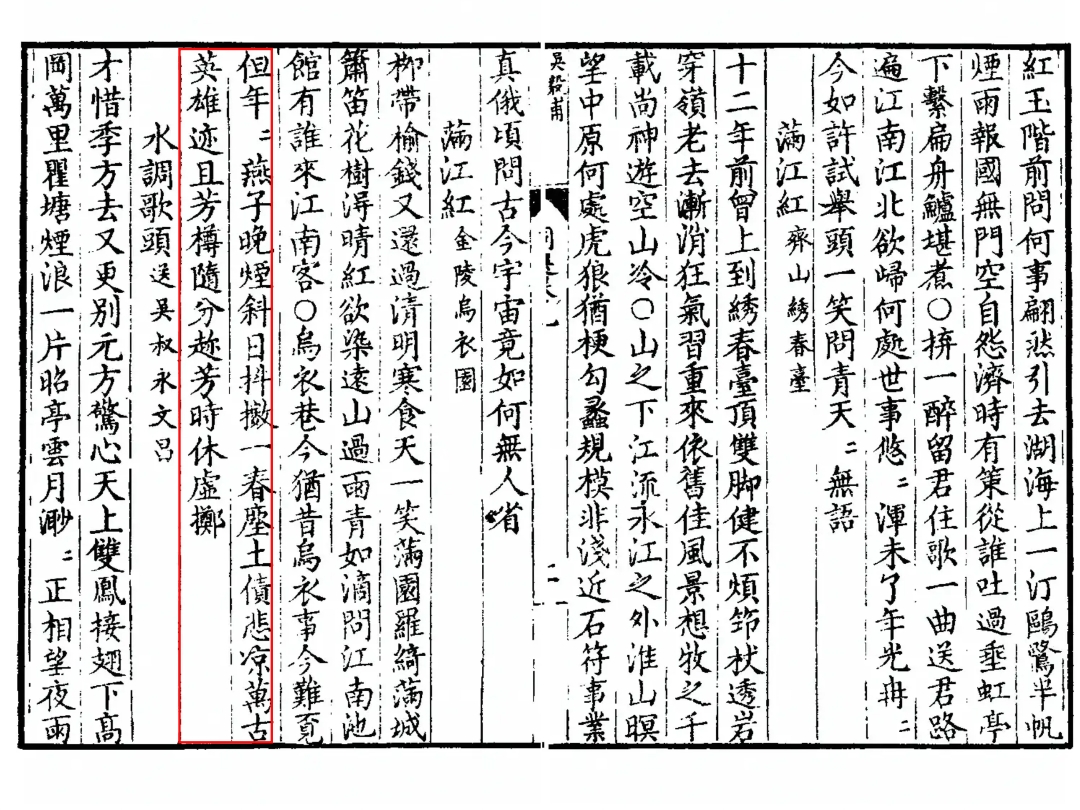 紅玉階前問何事翩然引去湖海上一汀鷗鷺半帆
煙雨報國無門空自怨濟時有策從誰吐過垂虹亭
下繫扁舟鱸堪煮○拚一醉留君住歌一曲送君路
遍江南江北欲歸何處世事悠〻渾未了年光冉〻
今如許試舉頭一笑問青天〻無語
滿江紅 齊山綉春臺
十二年前曾上到綉春臺頂雙脚健不煩筇杖透岩
穿嶺老去漸消狂氣習重來依舊佳風景想牧之千
載尚神遊空山冷○山之下江流永江之外淮山暝
望中原何處虎狼猶梗勾蠡規模非淺近石符事業
吳毅甫
二
真俄頃問古今宇宙竟如何無人省
滿江紅 金陵烏衣園
柳帶榆錢又還過清明寒食天一笑滿園羅綺滿城
簫笛花樹得晴紅欲染遠山過雨青如滴問江南池
館有誰來江南客○烏衣巷今猶昔烏衣事今難覓
但年〻燕子晚煙斜日抖擻一春塵土債悲凉萬古
英雄迹且芳樽隨分趂芳時休虛擲
水調歌頭 送吳叔永文昌
才惜季方去又更別元方驚心天上雙鳳接翅下高
岡萬里瞿塘煙浪一片昭亭雲月渺〻正相望夜雨